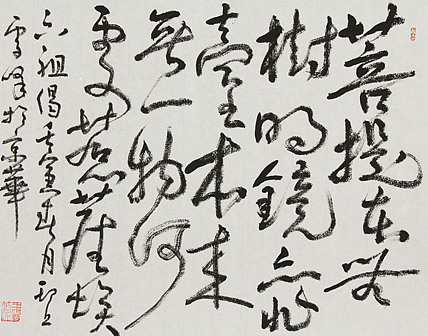 菩提本無
樹明鏡亦非
臺本来
無一物何
處惹塵埃
六祖偈月
雪峰於京華